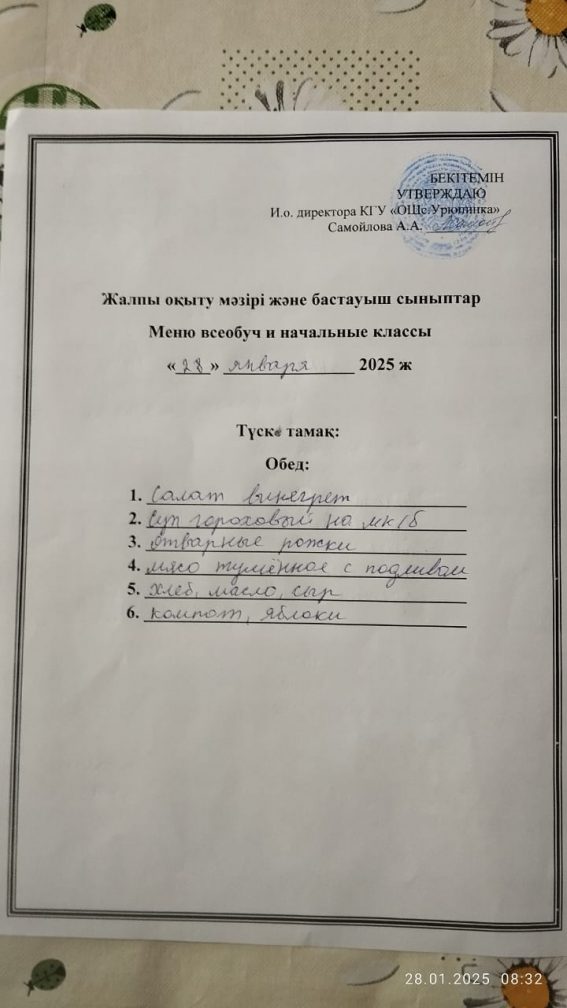 БЕКІТЕМІН
УТВЕРЖДАЮ
И.о. директора КГУ «ОШс.Урюпинка»
Самойлова А.А.
Жалпы оқыту мәзірі және бастауыш сыныптар
Меню всеобуч и начальные классы
«28» января 2025 ж
Түскі тамақ:
Обед:
1. Салат винегрет
2. Суп гороховый на мк/б
3. Отварные рожки
4. мясо тушённое с подливом
5. хлеб, масло, сыр
6. компот, яблоки
28.01.2025 08:32